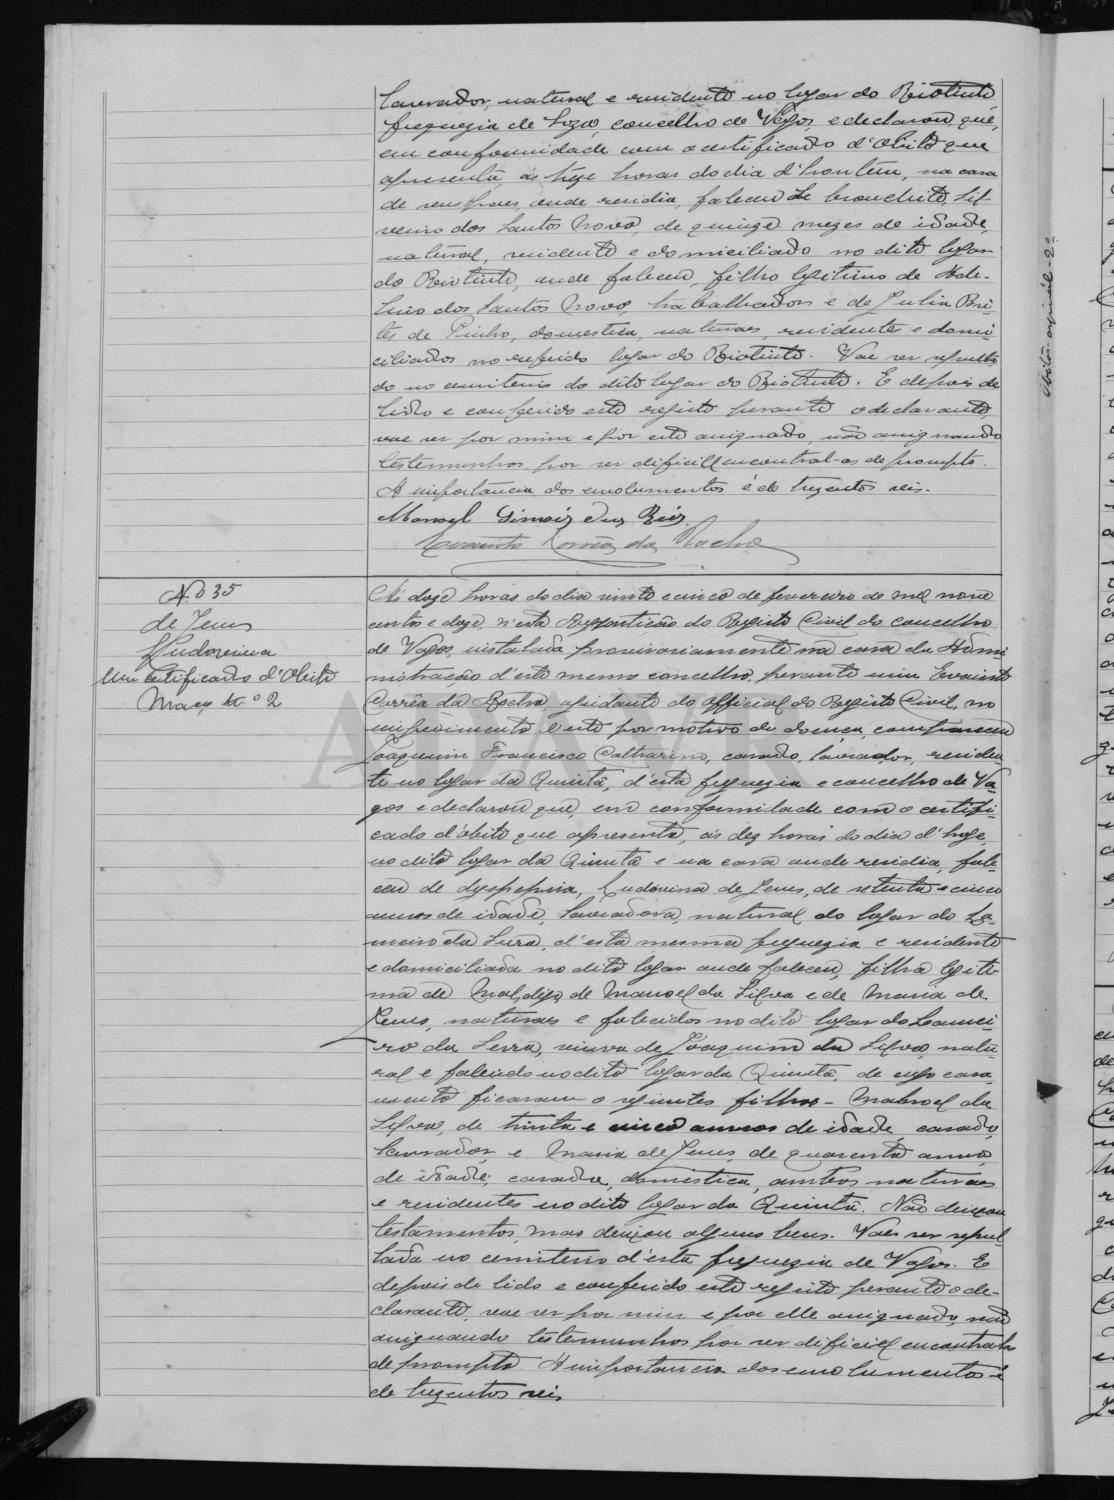 lavrador, natural e residente no logar do Riotinto,
freguezia de Soza, concelho de Vagos, e declarou, que,
em conformidade com o certificado d'obito que
apresenta, ás treze horas do dia d'hontem, na casa
de seus paes, onde residia, faleceu de bronchite, Sil-
verio dos Santos Novo, de quinze mezes de idade,
natural, residente e domiciliado no dito logar
do Riotinto, onde faleceu, filho legitimo de Ade-
lino dos Santos Novo, trabalhador e de Julia Bri-
tes de Pinho, domestica, naturaes, residentes e domi-
ciliados no referido logar do Riotinto. Vae ser sepulta-
do no cemiterio do dito logar do Riotinto. E depois de
lido e conferido este registo perante o declarante,
vae ser por mim e por este assignado, não assignando
testemunhas por ser dificil encontral-as de prompto.
A importancia dos emolumentos é de trezentos reis.
Manoel Simois dus Reis
Evaristo Corrêa da Rocha
N.º 35
de Jesus
Ludovina
Um certificado d'Obito
Maço n.º 2
Ás doze horas do dia vinte e cinco de fevereiro de mil nove
centos e doze, n'esta Repartição do Registo Civil do concelho
de Vagos, instalada provisoriamente na casa da Admi-
nistração d'este mesmo concelho, perante mim Evaristo
Corrêa da Rocha, ajudante do official do Registo Civil, no
impedimento d'este por motivo de doença, compareceu
Joaquim Francisco Catharino, casado, lavrador, residen-
te no logar da Quintã, d'esta freguezia e concelho de Va-
gos e declarou que, em conformidade com o certifi-
cado d'óbito que apresenta, ás dez horas do dia d'hoje,
no dito logar da Quintã e na casa onde residia, fale-
ceu de dyspepsia, Ludovina de Jesus, de setenta e cinco
annos de idade, lavradora, natural do logar do La-
meiro da Serra, d'esta mesma freguezia e residente
e domiciliada no dito logar onde faleceu, filha legiti-
ma de Mal, digo, de Manoel da Silva e de Maria de
Jesus, naturaes e falecidos no dito logar do Lamei-
ro da Serra, viuva de Joaquim da Silva, natu-
ral e falecido no dito logar da Quintã, de cujo casa-
mento ficaram o seguintes filhos - Manoel da
Silva, de trinta e cinco annos de idade, casado,
lavrador, e Maria de Jesus, de quarenta annos
de idade, casada, domestica, ambos naturaes
e residentes no dito logar da Quintã. Não deixou
testamentos, mas deixou alguns bens. Vae ser sepul-
tada no cemiterio d'esta freguezia de Vagos. E
depois de lido e conferido este registo perante o de-
clarante, vae ser por mim e por elle assignado, não
assignando testemunhas por ser dificil encontral-as
de prompto. A importancia dos emolumentos é
de trezentos reis